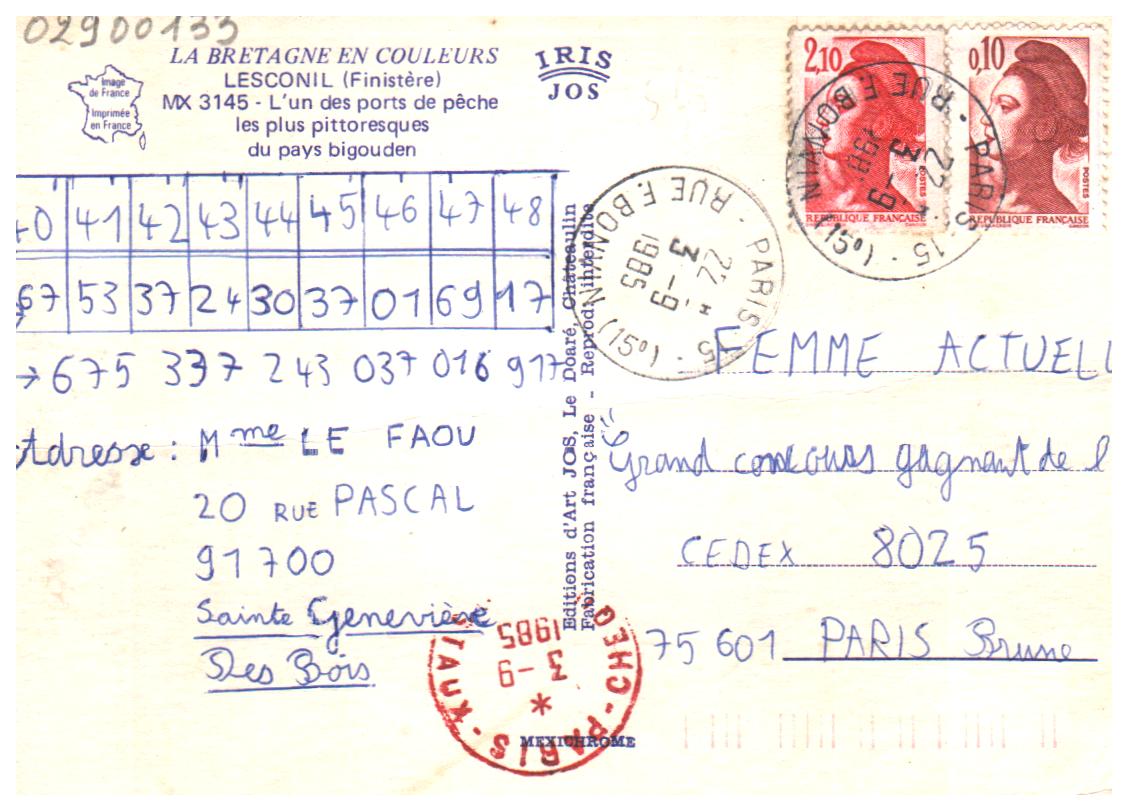 02900133
LA BRETAGNE EN COULEURS
LESCONIL (Finistère)
MX 3145 - L'un des ports de pêche
les plus pittoresques
du pays bigouden
Image
de France
Imprimée
en France
IRIS
JOS
2,10
REPUBLIQUE FRANÇAISE
POSTES
0,10
REPUBLIQUE FRANÇAISE
POSTES
PARIS · 15 · (15°) RUE F. BONVIN
22 H
3 - 9
198
PARIS · 15 · (15°) RUE F. BONVIN
22 H
3 - 9
1985
40 41 42 43 44 45 46 47 48
67 53 37 24 30 37 01 69 17
→ 675 337 243 037 016 917
Adresse : Mme LE FAOU
20 RUE PASCAL
91700
Sainte Geneviève
Des Bois
Editions d'Art JOS, Le Doaré, Chateaulin
Fabrication française - Reprod. interdite
FEMME ACTUELL
"Grand concours gagnant de l
CEDEX 8025
75 601 PARIS Brune
PARIS - CHEQ TAUX
3 - 9
1985
MEXICHROME